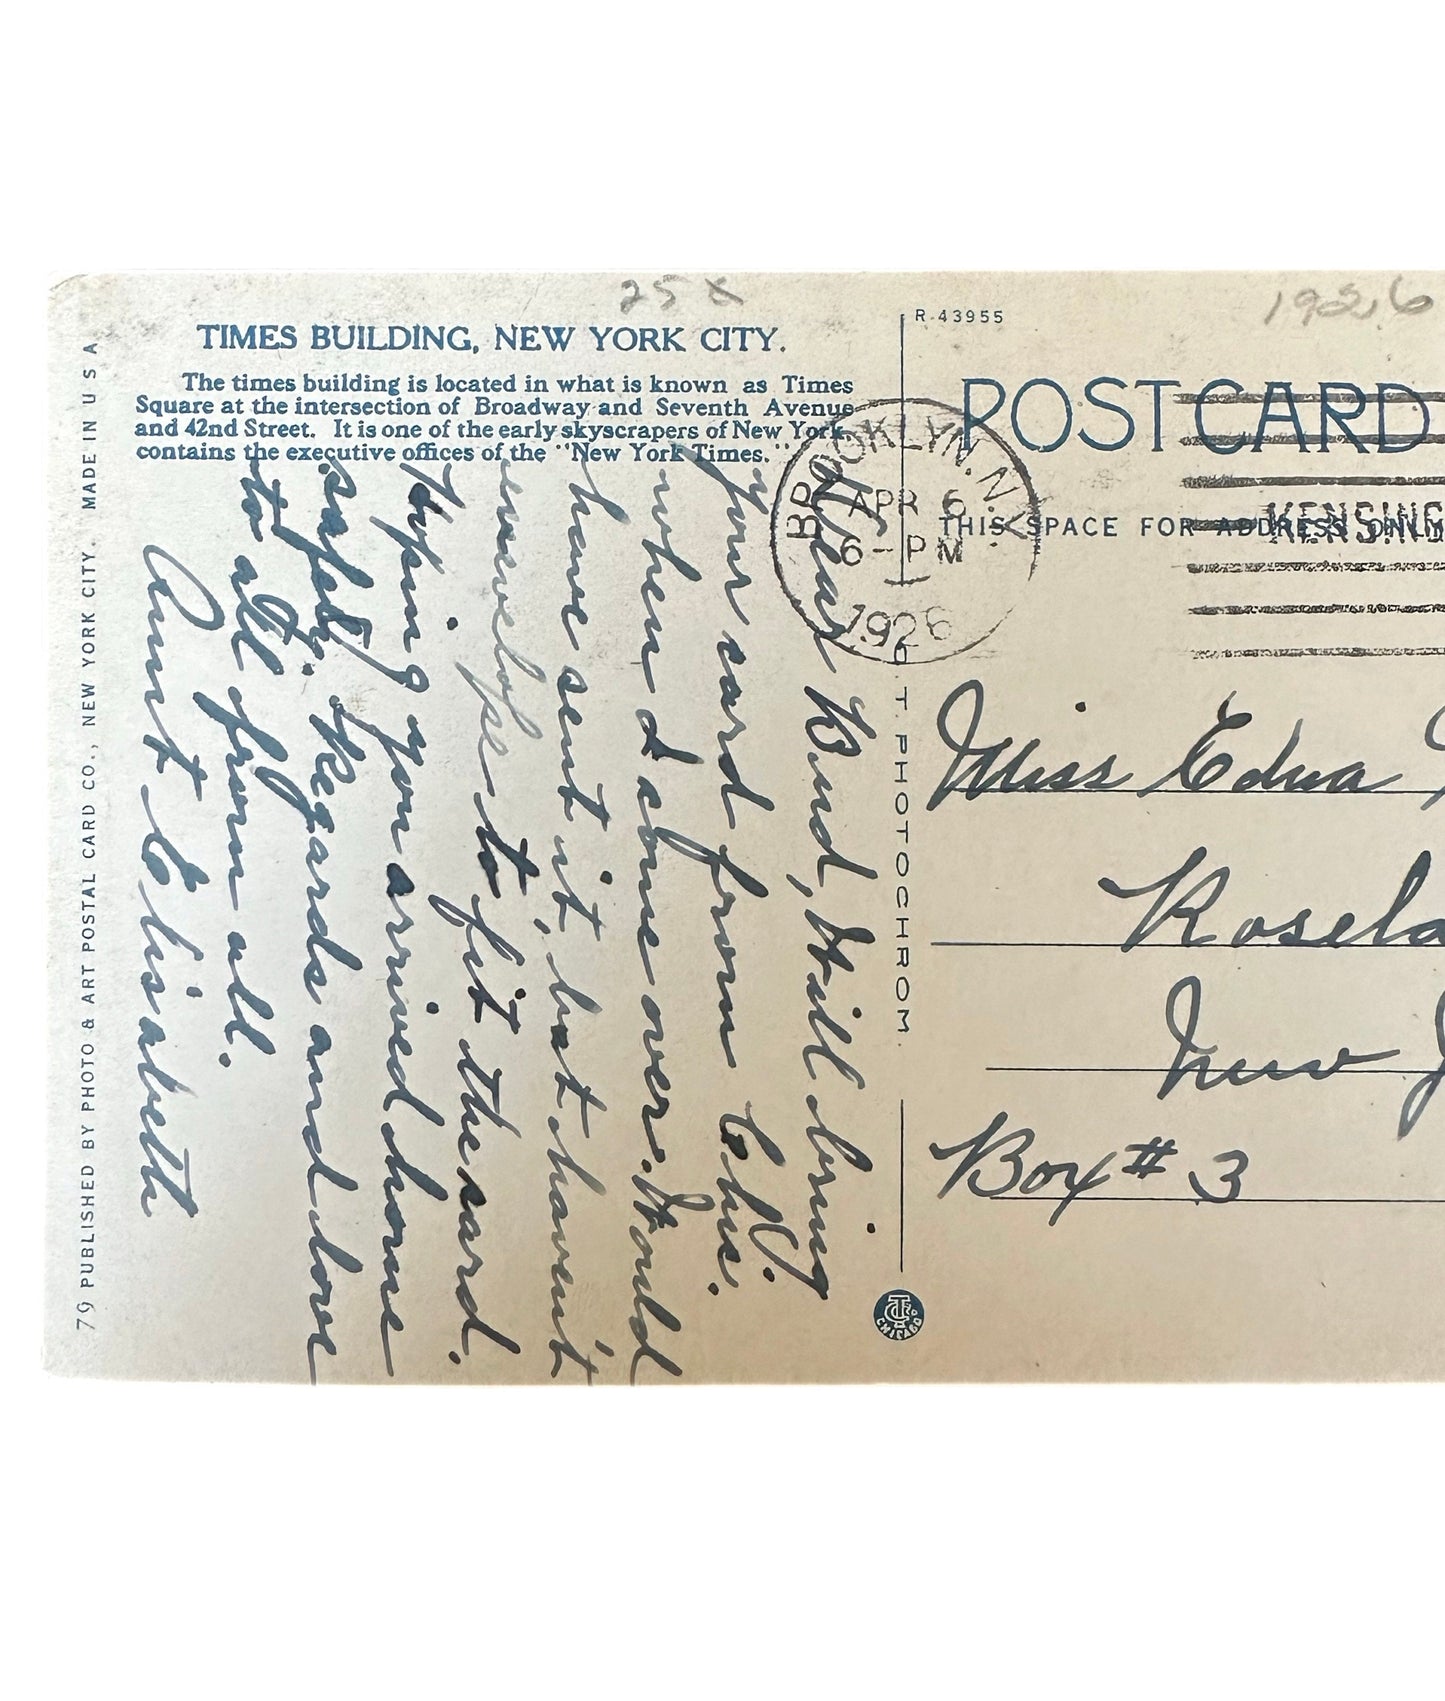 25 x
1926
TIMES BUILDING, NEW YORK CITY.
The times building is located in what is known as Times
Square at the intersection of Broadway and Seventh Avenue
and 42nd Street. It is one of the early skyscrapers of New York
contains the executive offices of the "New York Times."
R-43955
POST CARD
BROOKLYN, N.Y.
APR 6
6-PM
1926
KENSING
THIS SPACE FOR ADDRESS ONLY
Dear Kund, Will bring
your card from Chis. N.
when I come over. Would
have sent it, but havent
envelope to fit the card.
Hoping you arrived home
safely. Regards and love
to all from all.
Aunt Elisabeth
Miss Edna
Rosela
New J
Box # 3
C.T. PHOTOCHROM.
C.T. Co.
CHICAGO
79 PUBLISHED BY PHOTO & ART POSTAL CARD CO., NEW YORK CITY. MADE IN U S A